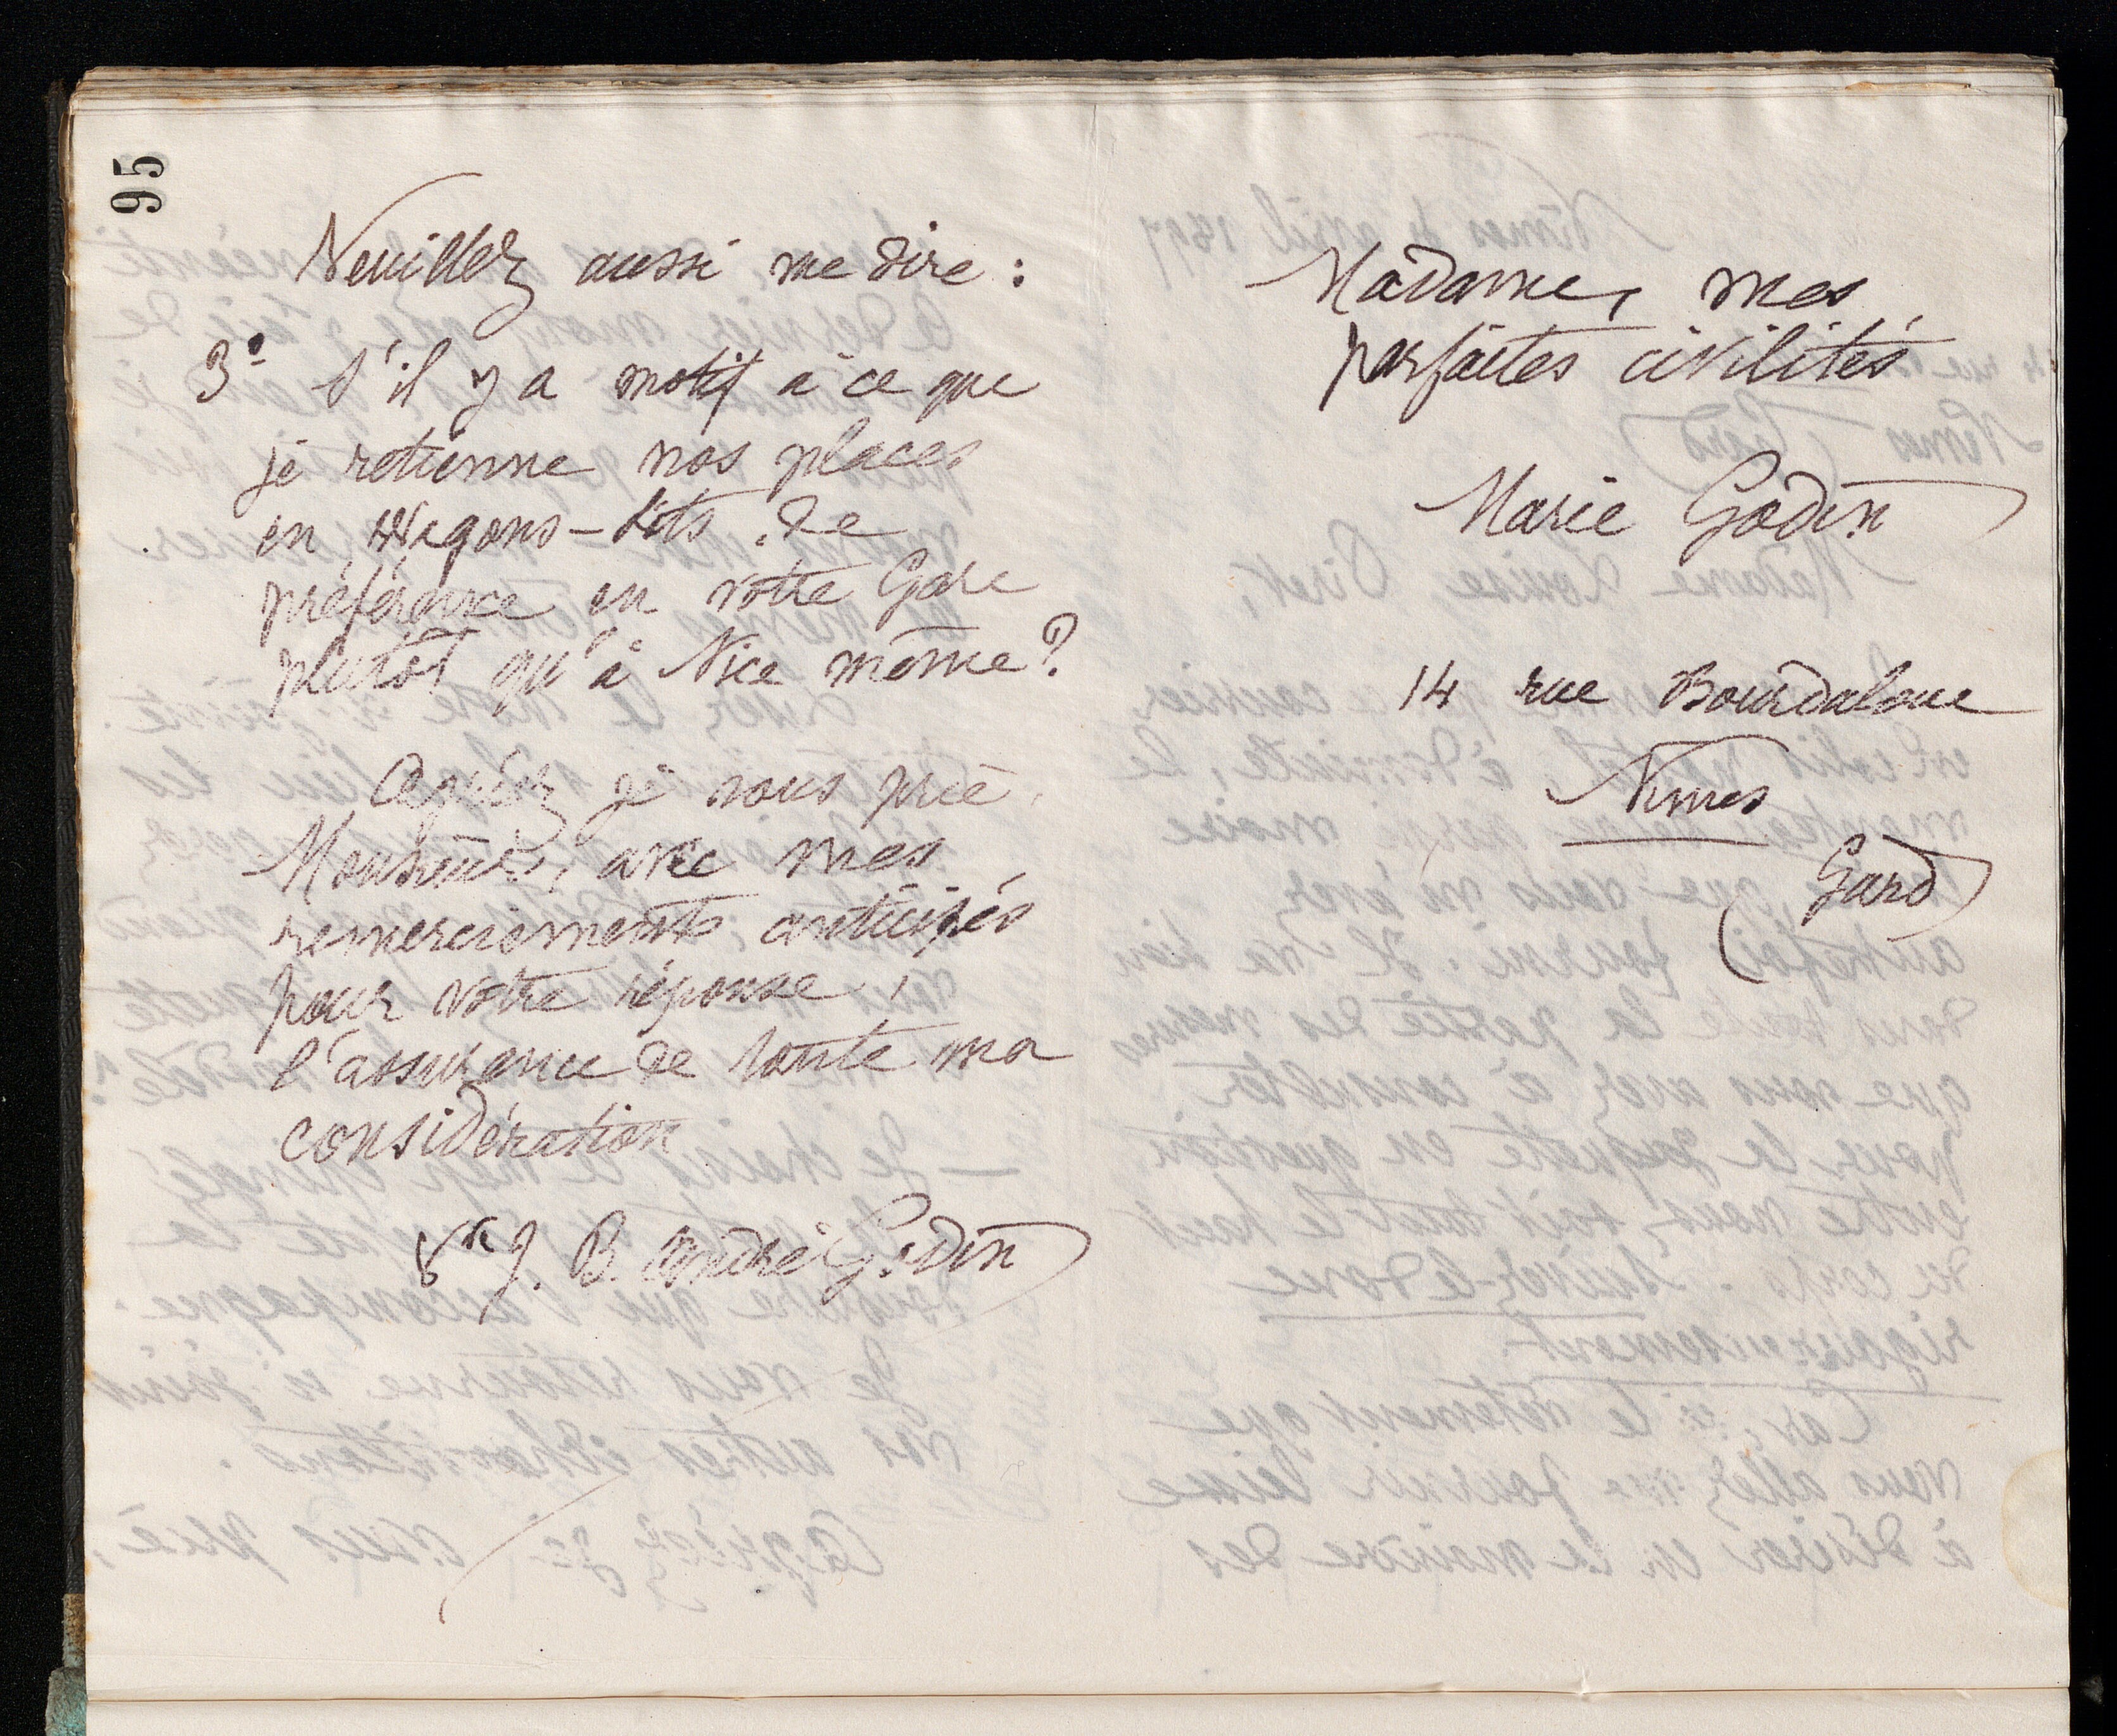 95
Veuillez aussi me dire :
3° S'il y a motif à ce que
je retienne nos places
en Wagons-lits de
préférence en votre Gare
plutôt qu'à Nice même ?
Agréez je vous prie,
Monsieur, avec mes
remerciements anticipés
pour votre réponse,
l'assurance de toute ma
considération
Vve J. B. André Godin
Madame, mes
parfaites civilités
Marie Godin
14 rue Bourdaloue
Nimes
(Gard)